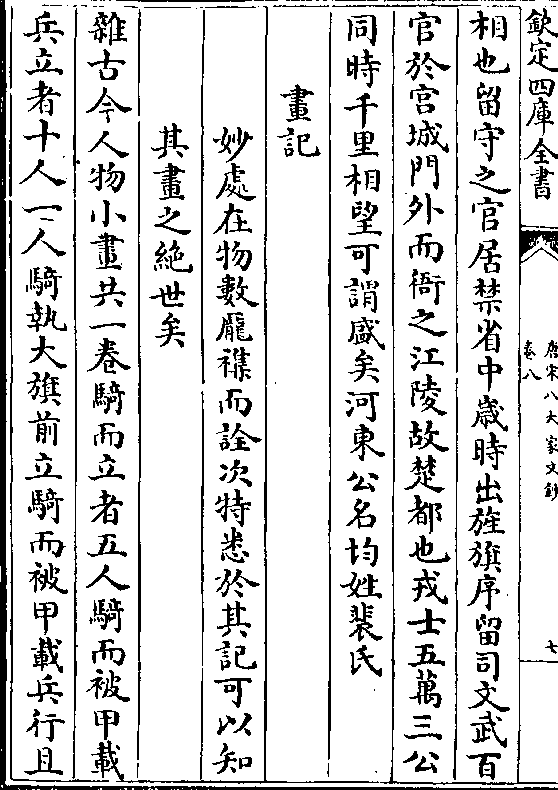 欽定四庫全書
唐宋八大家文鈔
卷八
七
相也留守之官居禁省中歲時出旌旗序留司文武百
官於宮城門外而衙之江陵故楚都也戎士五萬三公
同時千里相望可謂盛矣河東公名均姓裴氏
畫記
妙處在物數龐襍而詮次特悉於其記可以知
其畫之絶世矣
雜古今人物小畫共一卷騎而立者五人騎而被甲載
兵立者十人一人騎執大旗前立騎而被甲載兵行且